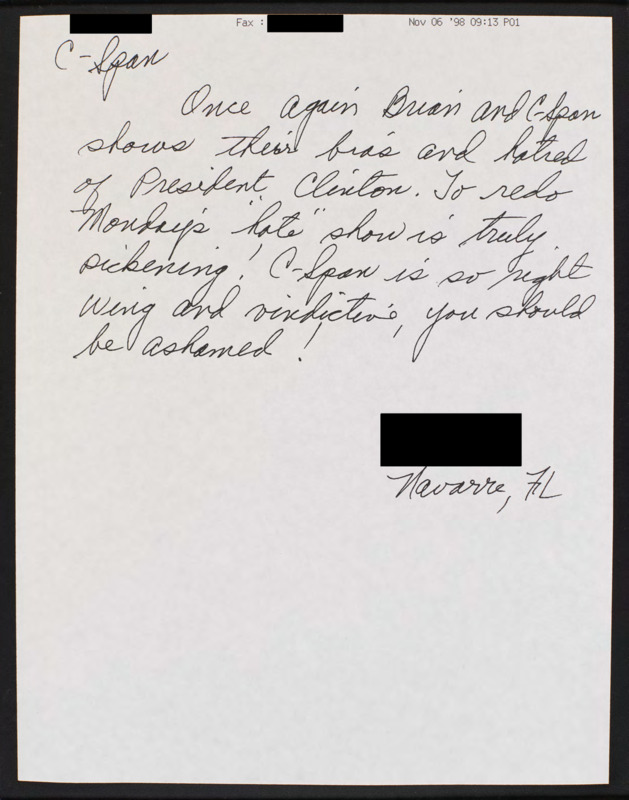 Fax :
Nov 06 '98 09:13 P01
C-Span
Once again Brian and C-Span
shows their bias and hatred
of President Clinton. To redo
Monday's "hate" show is truly
sickening! C-Span is so right
wing and vindictive, you should
be ashamed!
Navarre, FL